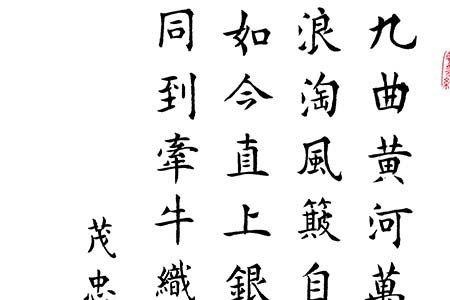 九曲黄河萬
浪淘風簸自
如今直上銀
同到牽牛織
茂忠